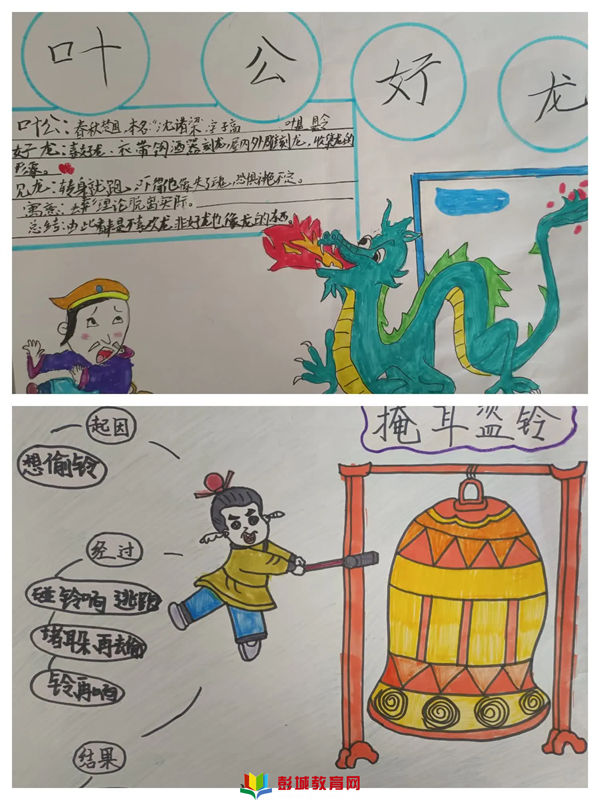 叶公好龙
叶公:春秋楚国,本名"沈诸梁",字子高 叶县令
好龙:喜好龙、衣带钩酒器刻龙,居内外雕刻龙,收集龙的
形象。
见龙:转身就跑,
寓意:去 理论脱离实际。
总结:由此 是不喜欢龙,非好龙也 像龙的东西。
掩耳盗铃
起因
想偷铃
经过
碰铃响 逃跑
堵耳朵再去偷
铃再响
结果
彭城教育网